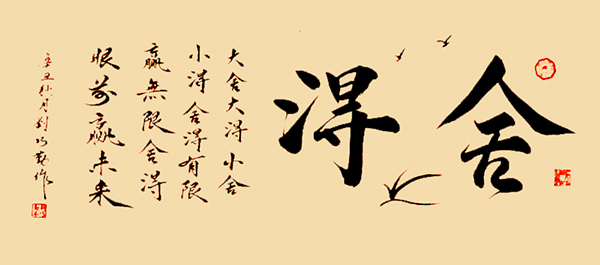 舍得
大舍大得小舍
小得舍得有限
赢無限舍得
眼前赢未来
辛丑秋月刘
作